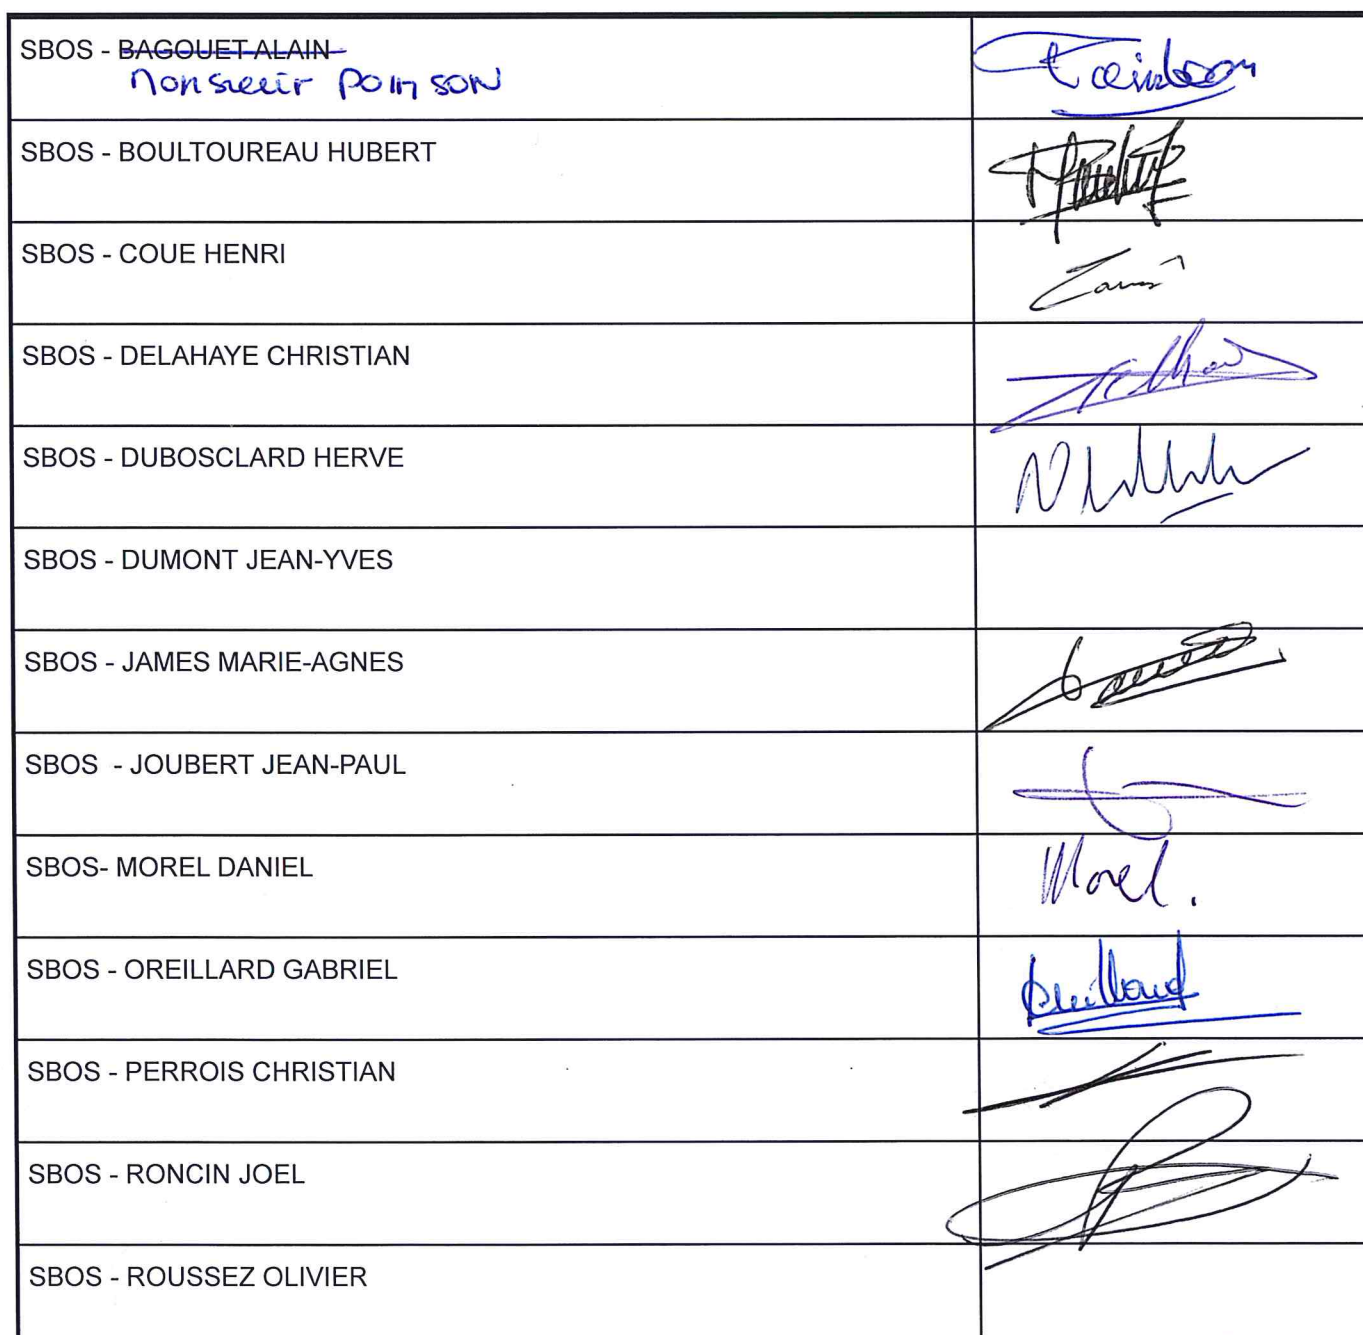 SBOS - BAGOUET ALAIN
Monsieur Poinson
SBOS - BOULTOUREAU HUBERT
SBOS - COUE HENRI
SBOS - DELAHAYE CHRISTIAN
SBOS - DUBOSCLARD HERVE
SBOS - DUMONT JEAN-YVES
SBOS - JAMES MARIE-AGNES
SBOS - JOUBERT JEAN-PAUL
SBOS- MOREL DANIEL
Morel.
SBOS - OREILLARD GABRIEL
Oreillard
SBOS - PERROIS CHRISTIAN
SBOS - RONCIN JOEL
SBOS - ROUSSEZ OLIVIER